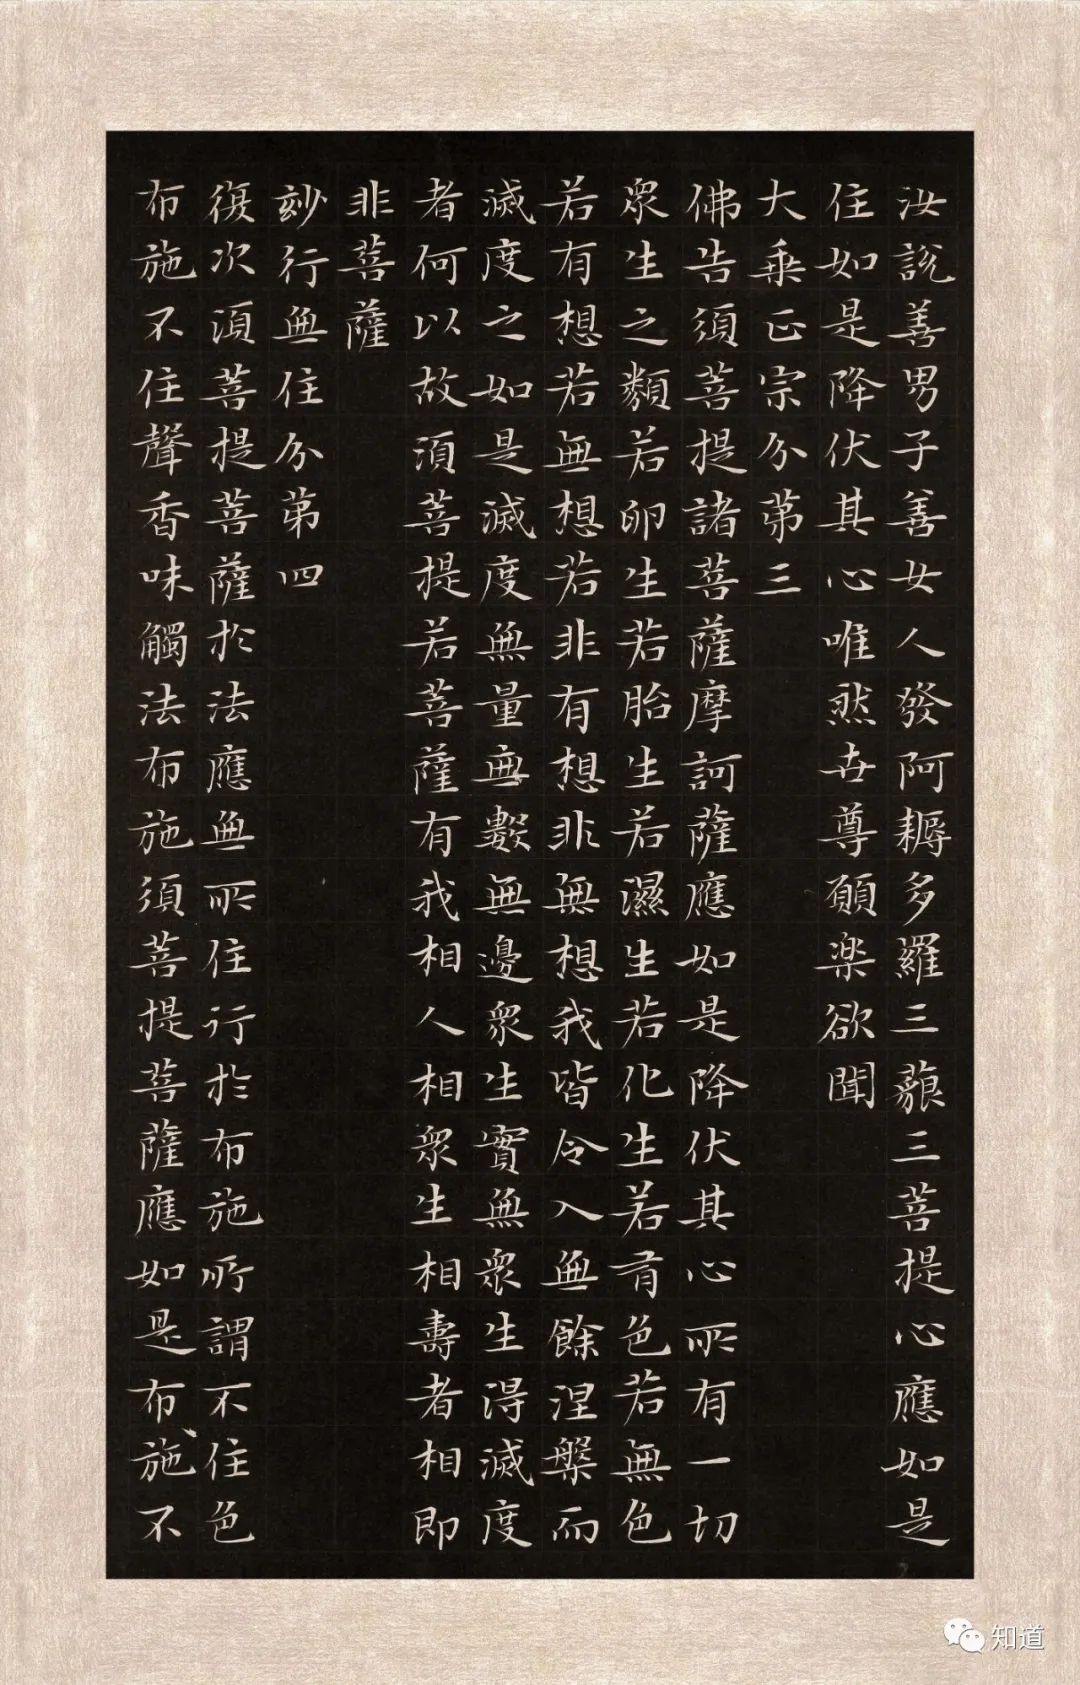 汝説善男子善女人發阿耨多羅三藐三菩提心應如是
住如是降伏其心唯然世尊願樂欲聞
大乗正宗分第三
佛告須菩提諸菩薩摩訶薩應如是降伏其心所有一切
衆生之類若卵生若胎生若濕生若化生若有色若無色
若有想若無想若非有想非無想我皆令入無餘涅槃而
滅度之如是滅度無量無數無邊衆生實無衆生得滅度
者何以故須菩提若菩薩有我相人相衆生相壽者相即
非菩薩
妙行無住分第四
復次須菩提菩薩於法應無所住行於布施所謂不住色
布施不住聲香味觸法布施須菩提菩薩應如是布施不
知道